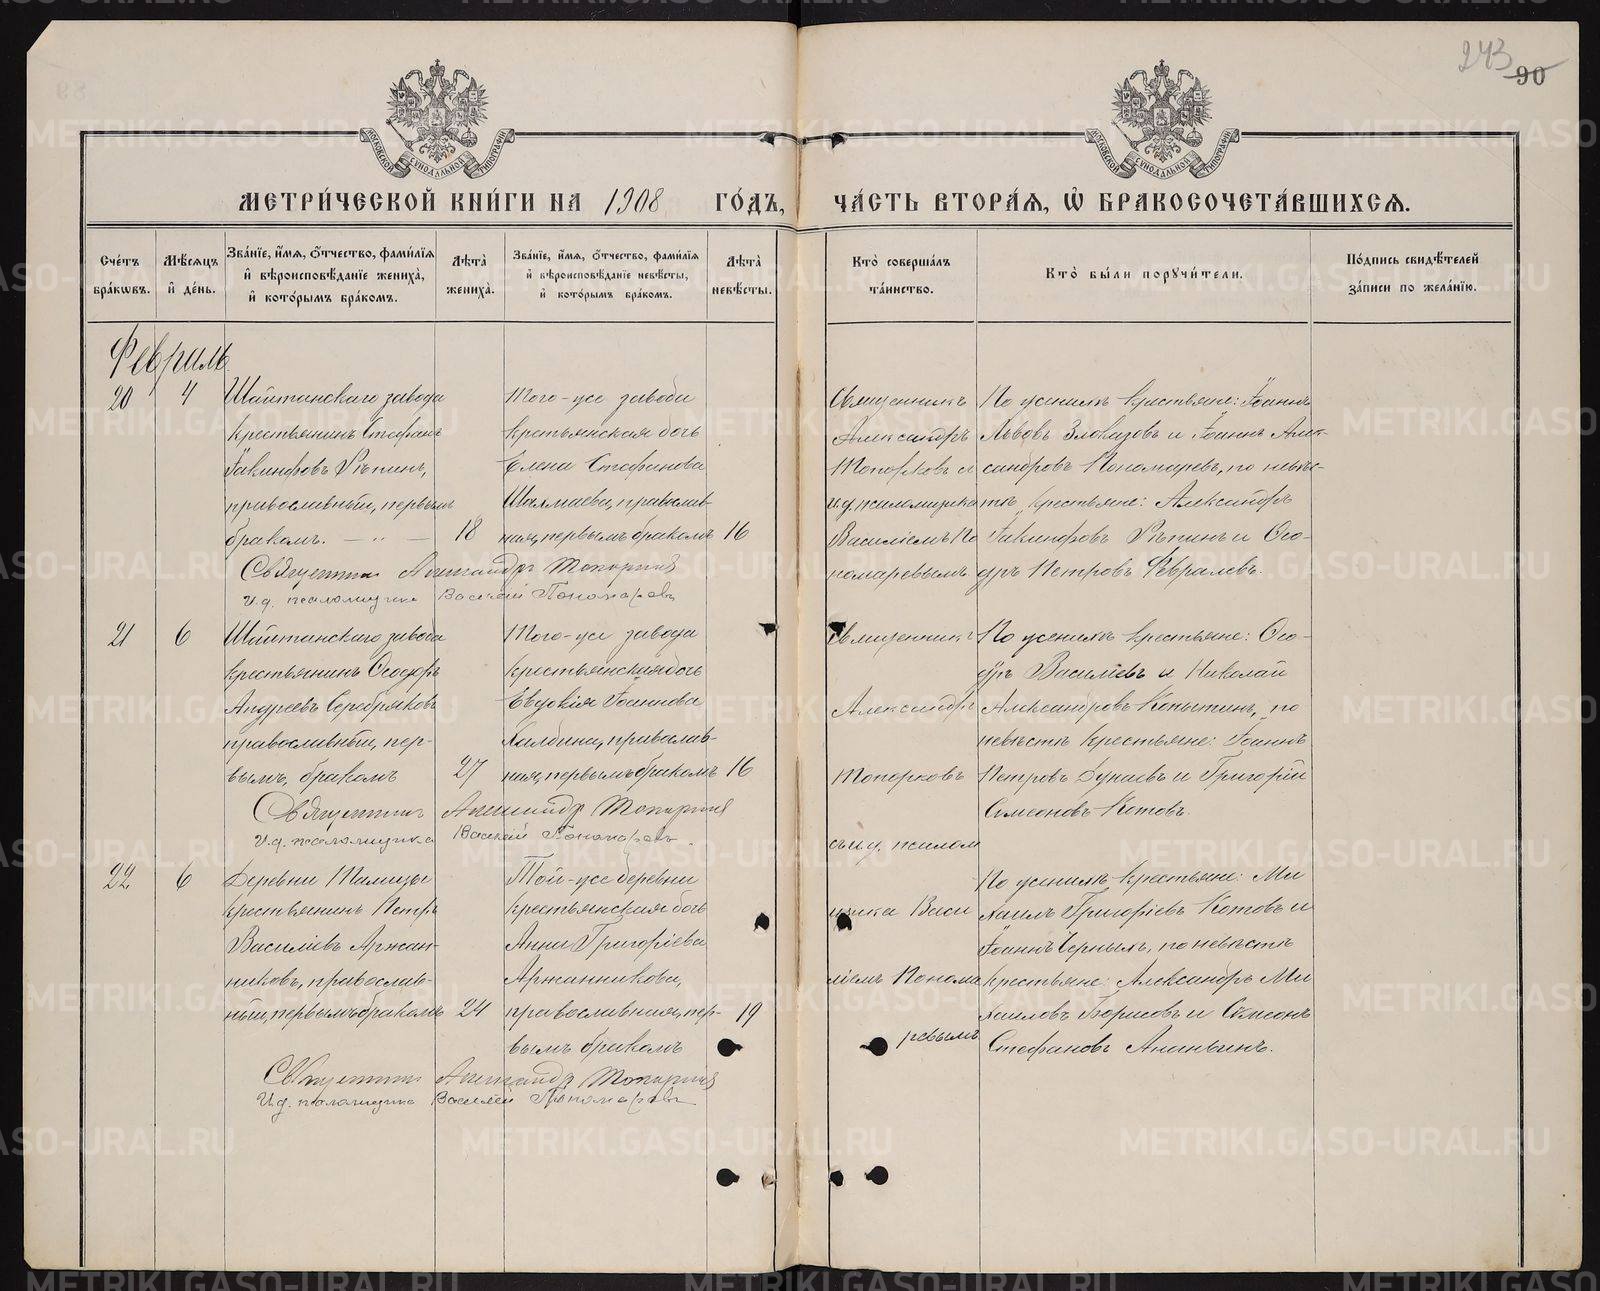 243
90
МОСКОВСКОЙ СУНОДАЛЬНОЙ ТИПОГРАФІИ
МОСКОВСКОЙ СУНОДАЛЬНОЙ ТИПОГРАФІИ
МЕТРИ́ЧЕСКОЙ КНИ́ГИ НА 1908 ГО́ДЪ, ЧА́СТЬ ВТОРА́Я, Ѡ҆ БРАКОСОЧЕТА́ВШИХСЯ.
Сче́тъ бра́кѡвъ.
Мѣ́сяцъ и҆ де́нь.
Зва́нїе, и҆́мя, ѻ҆́тчество, фами́лїя и҆ вѣроисповѣ́данїе жениха̀, и҆ кото́рымъ бра́комъ.
Лѣта̀ жениха̀.
Зва́нїе, и҆́мя, ѻ҆́тчество, фами́лїя и҆ вѣроисповѣ́данїе невѣ́сты, и҆ кото́рымъ бра́комъ.
Лѣта̀ невѣ́сты.
Кто̀ соверша́лъ та́инство.
Кто̀ бы́ли поручи́тели.
По́дпись свидѣ́телей за́писи по жела́нїю.
Февраль
20
4
Шайтанскаго завода
крестьянинъ Стефанъ
Іакинфовъ Рѣпинъ,
православный, первымъ
бракомъ. — „ —
18
Того-же завода
крестьянская дочь
Елена Стефанова
Шалмаева, православ-
ная, первымъ бракомъ
16
Священникъ
Александръ
Топорковъ и
и. д. псаломщика
Василіемъ По
номаревымъ
По женихѣ крестьяне: Іоаннъ
Львовъ Злоказовъ и Іоаннъ Алек-
сандровъ Пономаревъ, по невѣс-
тѣ крестьяне: Александръ
Іакинфовъ Рѣпинъ и Ѳео-
дръ Петровъ Февралевъ.
Священникъ Александръ Топорковъ
И. д. псаломщика Василій Пономаревъ
21
6
Шайтанскаго завода
крестьянинъ Ѳеодоръ
Андреевъ Серебряковъ
православный, пер-
вымъ бракомъ
27
Того-же завода
крестьянская дочь
Евдокія Іоаннова
Халдина, православ-
ная, первымъ бракомъ
16
Священникъ
Александръ
Топорковъ
съ и. д. псалом
щика Васи
ліемъ Понома
ревымъ
По женихѣ крестьяне: Ѳео-
дръ Василіевъ и Николай
Александровъ Копытинъ, по
невѣстѣ крестьяне: Іоаннъ
Петровъ Дунаевъ и Григорій
Симеоновъ Котовъ.
Священникъ Александръ Топорковъ
И. д. псаломщика Василій Пономаревъ.
22
6
Деревни Талицы
крестьянинъ Петръ
Василіевъ Аржан-
никовъ, православ-
ный, первымъ бракомъ
24
Той-же деревни
крестьянская дочь
Анна Григоріева
Аржанникова,
православная, пер-
вымъ бракомъ
19
По женихѣ крестьяне: Ми
хаилъ Григоріевъ Котовъ и
Іоаннъ Черныхъ, по невѣстѣ
крестьяне: Александръ Ми
хаиловъ Борисовъ и Симеонъ
Стефановъ Ананьинъ.
Священникъ Александръ Топорковъ
И. д. псаломщика Василій Пономаревъ
METRIKI.GASO-URAL.RU